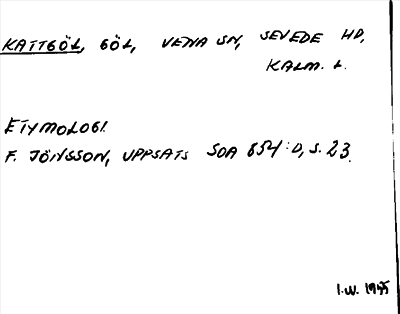 KATTGÖL, GÖL, VENA SN, SEVEDE HD,
KALM. L.
ETYMOLOGI.
F. JÖNSSON, UPPSATS SOA 854:D, S. 23.
I.W. 1955